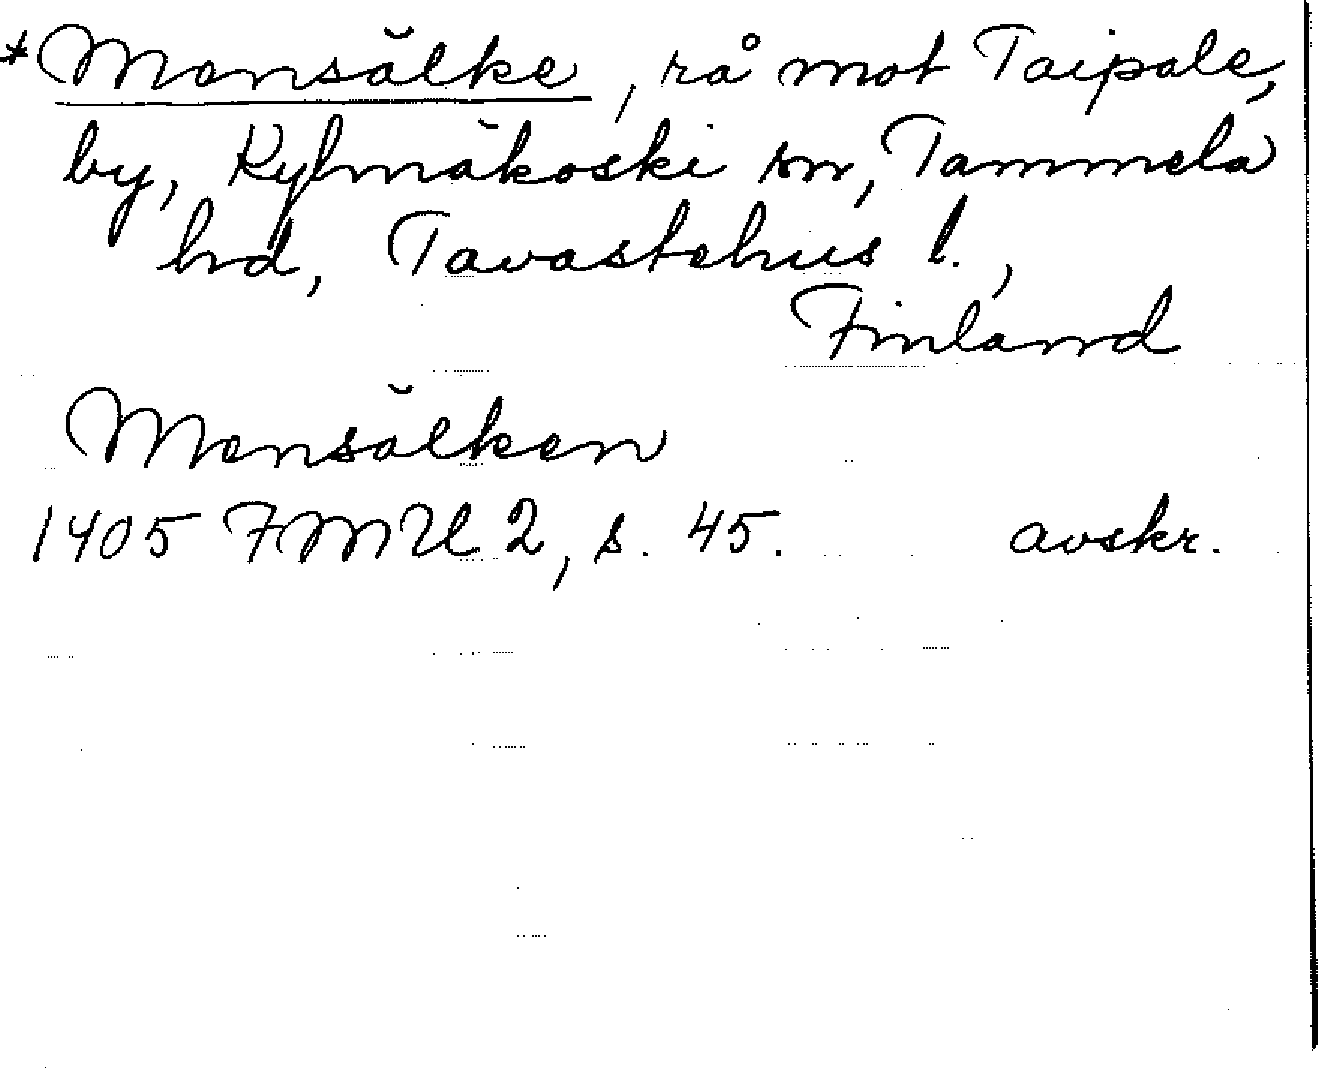 *Mensälke, rå mot Taipale,
by, Kylmäkoski sn, Tammela
hd, Tavastehus l.,
Finland
Mensälken
1405 FMU 2, s. 45. avskr.